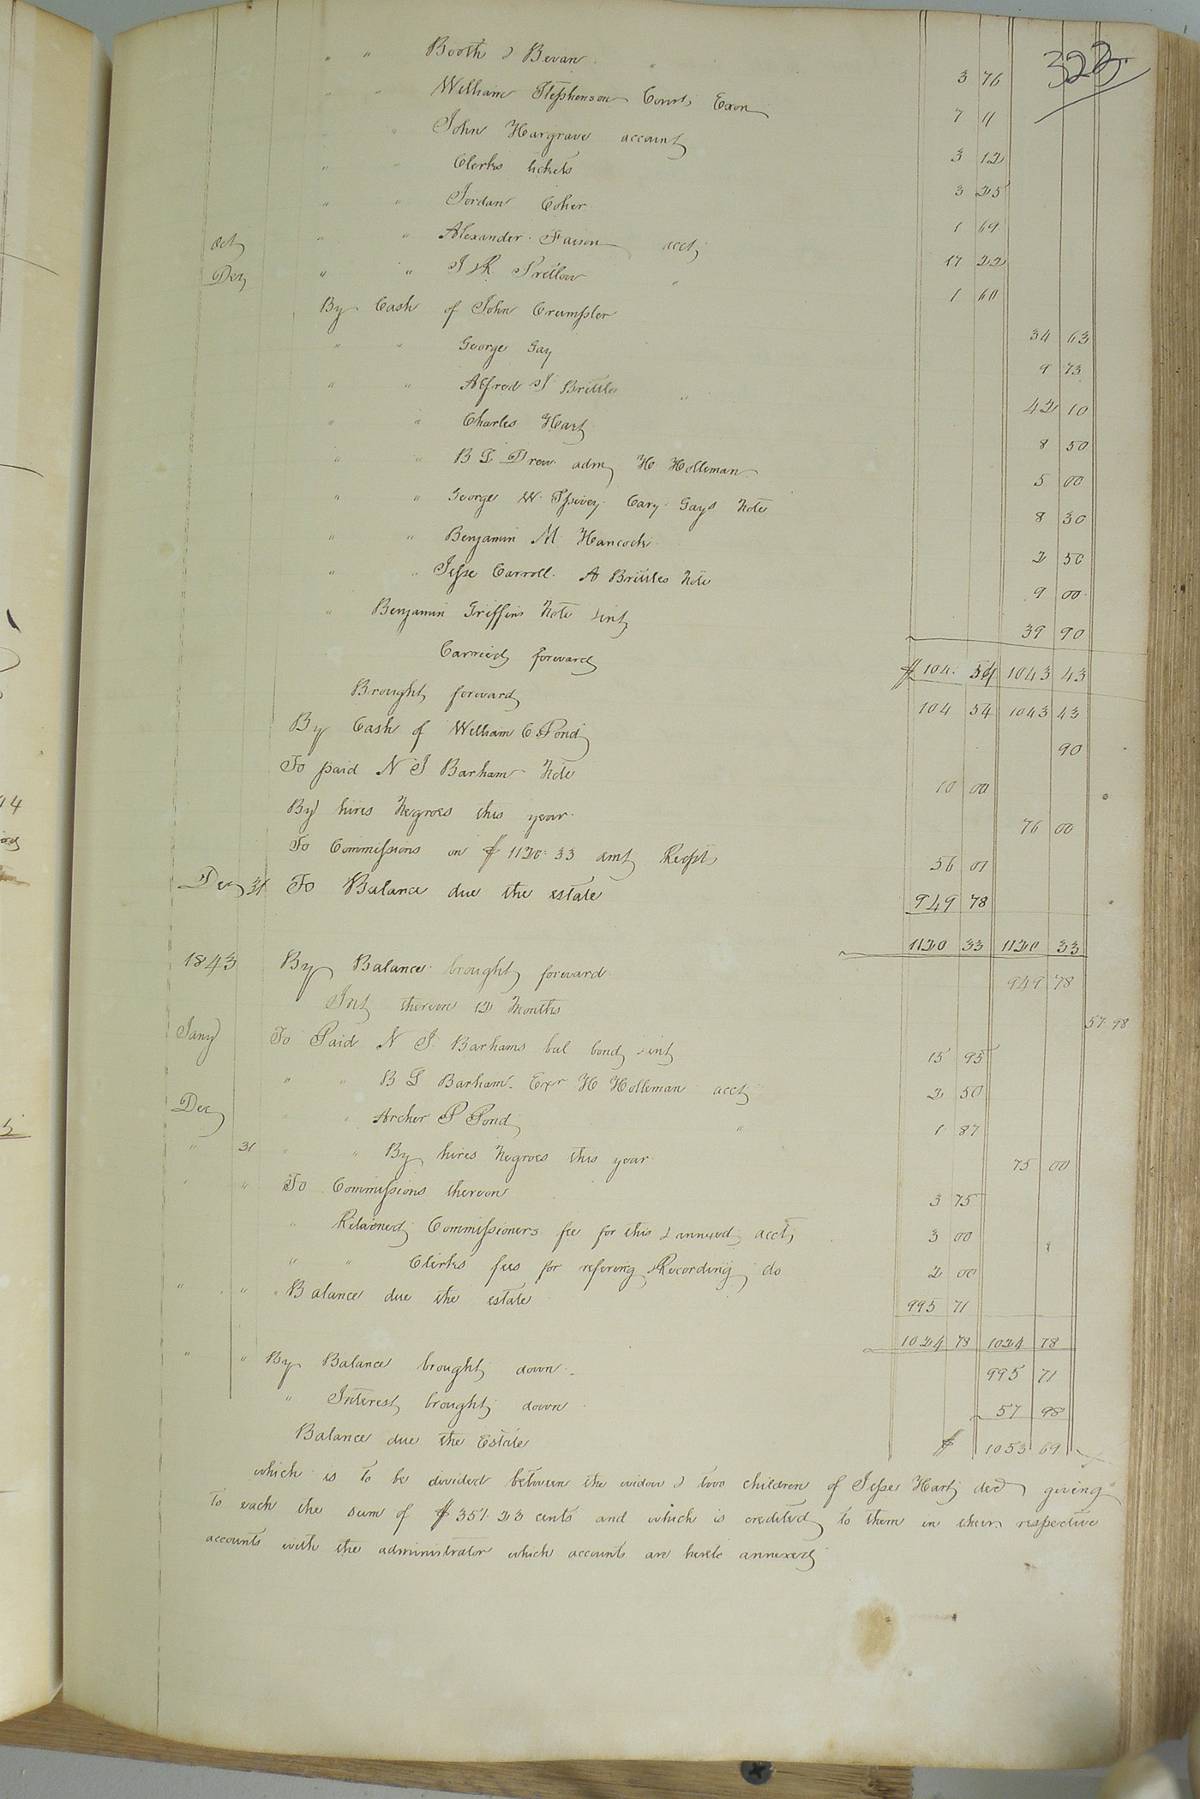 323
" " Booth & Bevan " 3 76
" " William Stephenson Const; Exon 7 11
" John Hargrave account 3 12
" " Clerks tickets 3 25
" " Jordan Coker 1 69
Oct " " Alexander Faison acct; 17 22
Dec " " J R Pretlow " 1 60
By Cash of John Crumpler 34 63
" " George Gay 9 73
" " Alfred J Brittle " 42 10
" " Charles Hart 8 50
" " B T Drew adm H Holleman 5 00
" " George W. Spivey Cary Gays Note 8 30
" " Benjamin M Hancock 2 50
" " Jesse Carroll A Brittles Note 9 00
" Benjamin Griffins Note & int 39 90
Carried forward $ 104. 54 1043 43
Brought forward 104 54 1043 43
By Cash of William C Pond 90
To paid N J Barham Note 10 00
By hires Negroes this year 76 00
To Commissions on $ 1120.33 amt Recpt 56 01
Dec 31 To Balance due the estate 949 78
1120 33 1120 33
1843 By Balance brought forward 949 78
Int thereon 12 Months 57 98
Jany To Paid N J. Barhams bal bond & int 15 95
" " B T Barham Exr H Holleman acct 2 50
Dec " " Archer P Pond " 1 87
" 31 " " By hires Negroes this year 75 00
" " To Commissions thereon 3 75
" Retained Commissioners fee for this & annexed acct; 3 00
" " Clerks fees for refering & Recording do 2 00
" " " Balance due the estate 995 71
1024 78 1024 78
" " By Balance brought down 995 71
" Interest brought down 57 98
Balance due the Estate $ 1053 69
which is to be divided between the widow & two children of Jesse Hart decd giving
to each the sum of $ 351.23 cents and which is credited to them in their respective
accounts with the administrator which accounts are hereto annexed